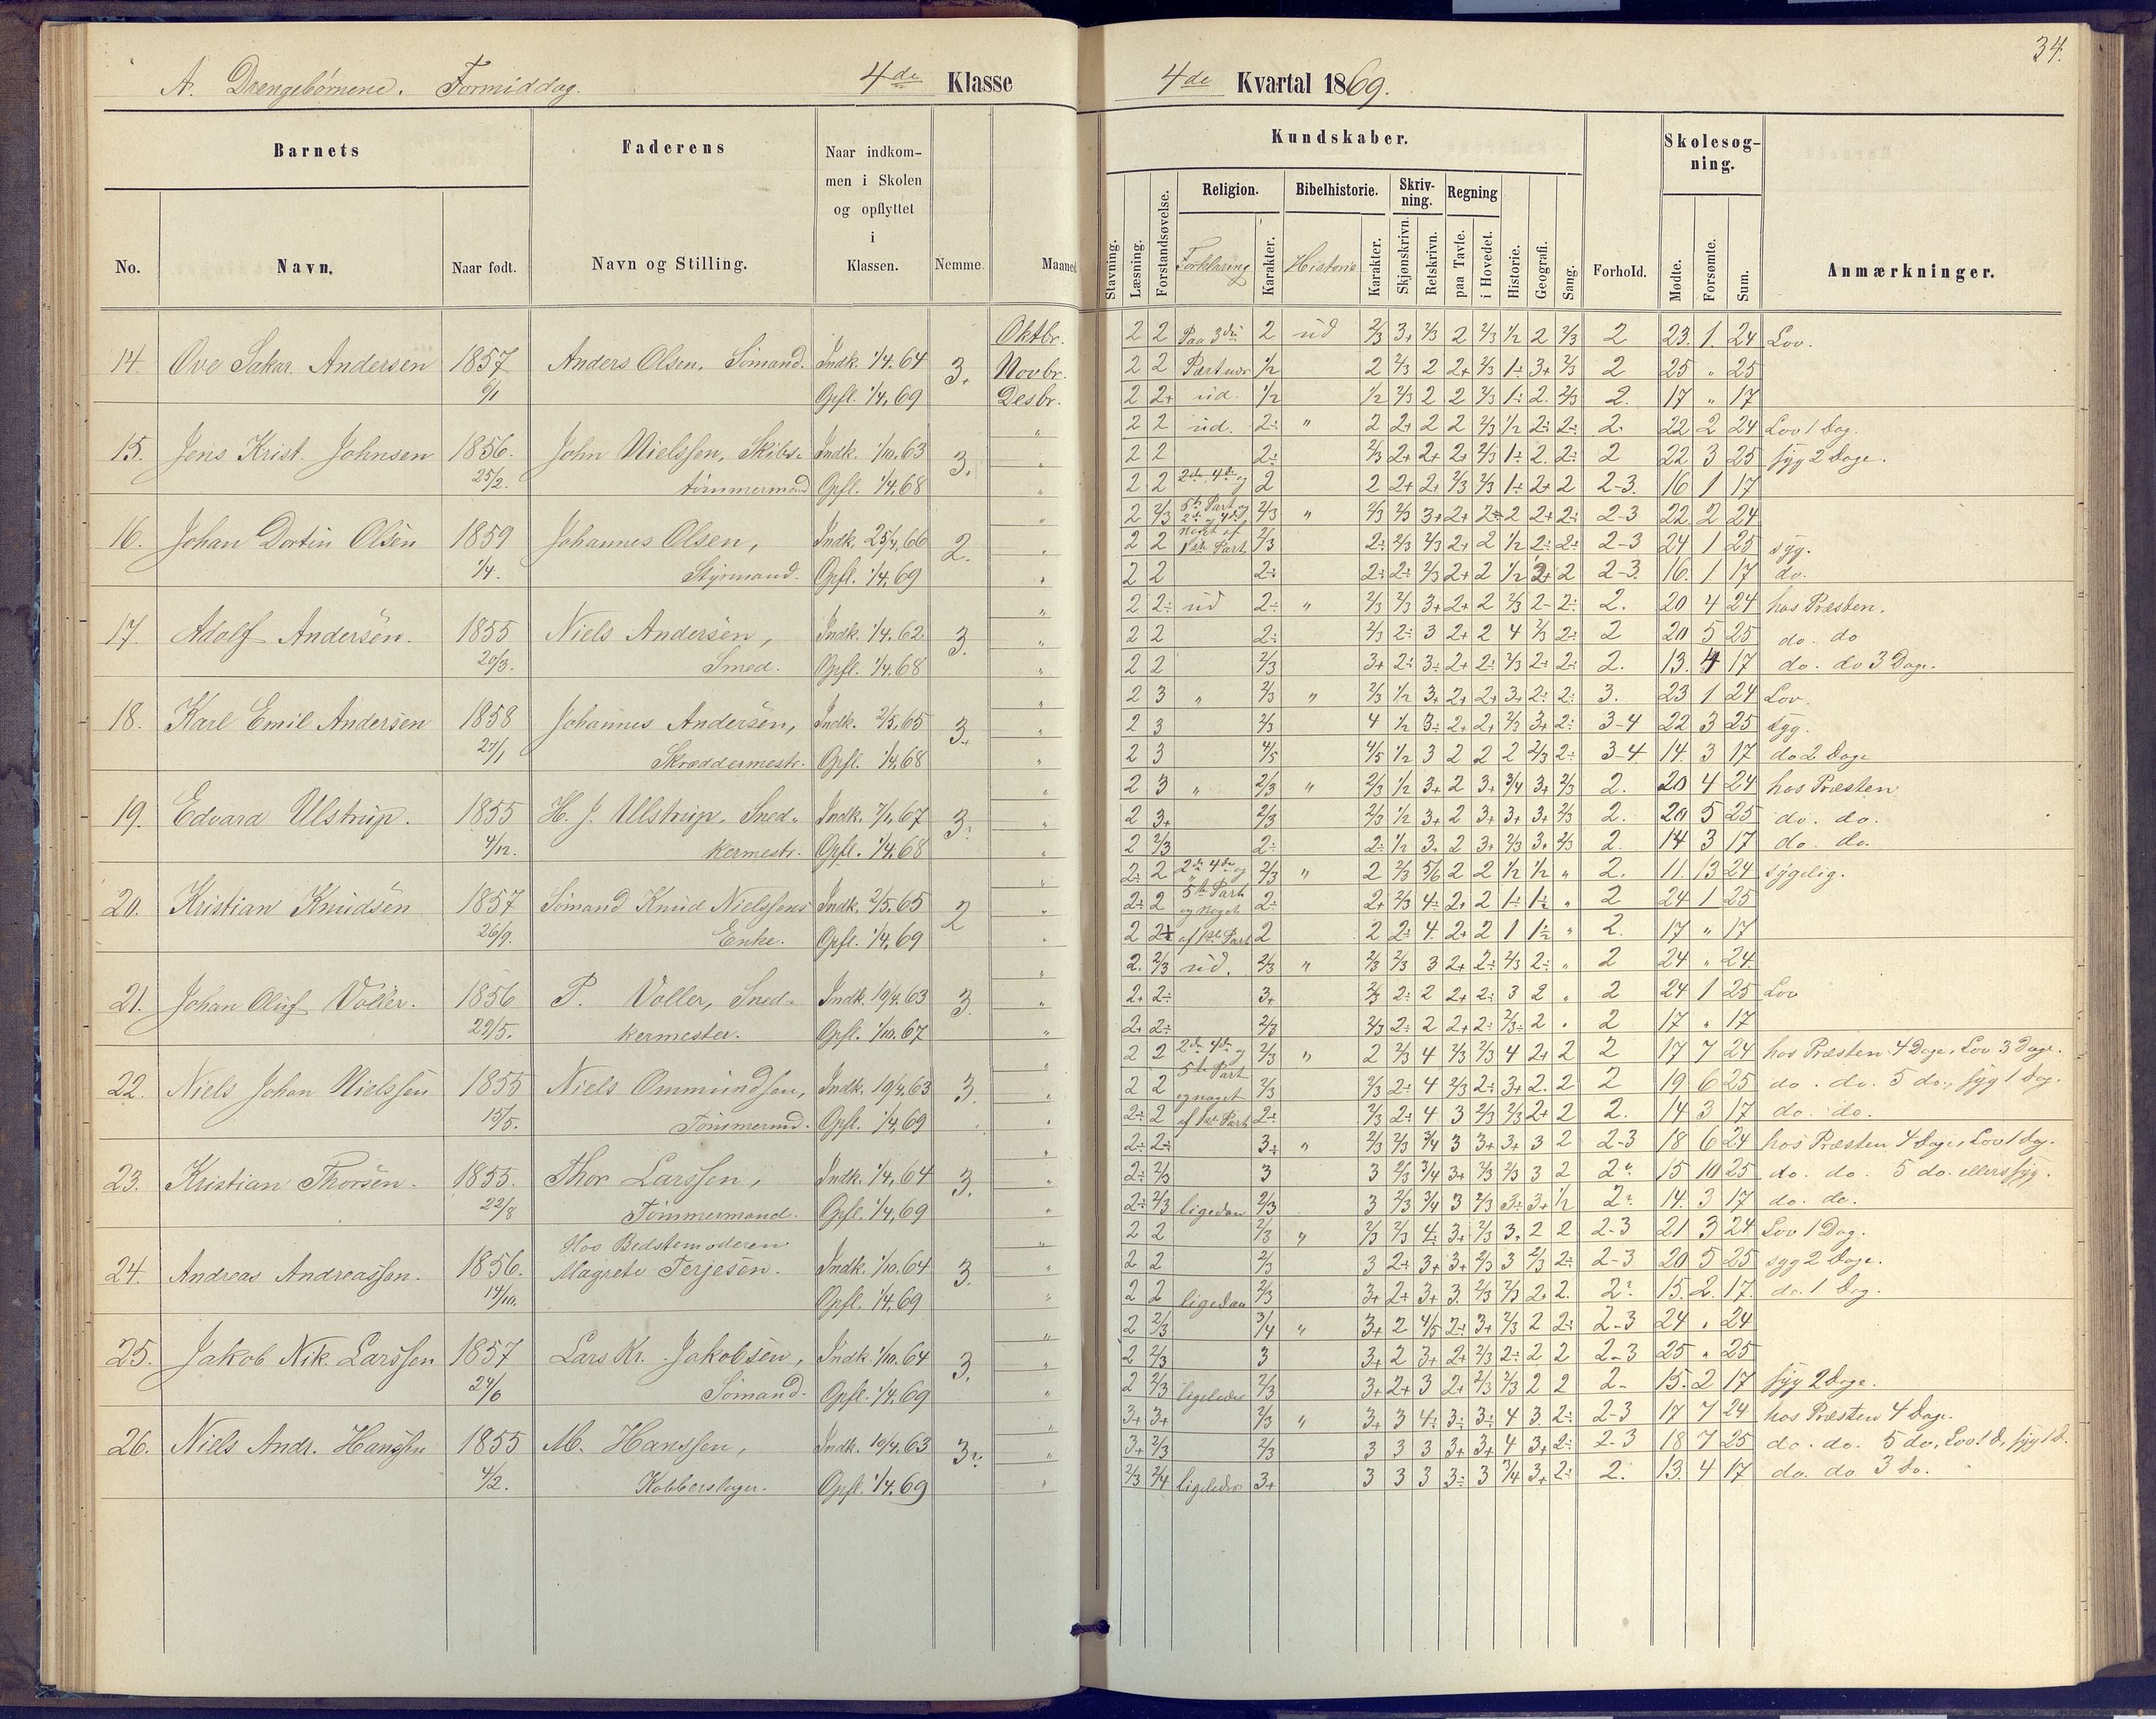 34.
A. Drengebörnene. Formiddag. 4de Klasse
4de Kvartal 1869.
Barnets
Faderens
Naar indkom-
men i Skolen
og opflyttet
i
Klassen.
No. Navn. Naar født. Navn og Stilling. Nemme. Maaned
Kundskaber.
Skolesøg-
ning.
Religion. Bibelhistorie. Skriv-
ning. Regning
Stavning. Læsning. Forstandsøvelse. Forklaring Karakter. Historie Karakter. Skjønskrivn. Retskrivn. paa Tavle. i Hovedet. Historie. Geografi. Sang. Forhold. Mødte. Forsømte. Sum. Anmærkninger.
14. Ove Andersen 1857 6/1 Anders Olsen, Sömand. Indk. 1/4. 64 Opfl. 1/4. 69 3.
Oktbr. 2 2 Paa 3die 2 ud 2/3 3+ 2/3 2 2/3 1/2 2 2/3 2 23. 1. 24 Lov.
Novbr. 2 2 1/2 2 2/3 2 2+ 2/3 1÷ 3+ 2/3 2 25 " 25
Desbr. 2 2+ ud. 1/2 1/2 2/3 2 2 2/3 1÷ 2. 2/3 2. 17 " 17
15. Jens Krist. Johnsen 1856. 25/2. John Nielssen, Skibs- tömmermand Indk. 1/10. 63 Opfl. 1/4. 68 3.
" 2 2 ud. 2÷ " 2 2+ 2 2 2/3 1/2 2÷ 2÷ 2. 22 2 24 Lov 1 Dag.
" 2 2 2÷ 2/3 2+ 2+ 2+ 2/3 1÷ 2. 2÷ 2 22 3 25 syg 2 Dage.
" 2 2 2den 4de og 2 2 2+ 2+ 2/3 2/3 1÷ 2+ 2 2-3. 16 1 17
16. Johan Olsen 1859 1/4. Johannes Olsen, Styrmand. Indk. 25/4, 66 Opfl. 1/4, 69 2.
" 2 2/3 5te Part og 2/3 " 2/3 2/3 3+ 2+ 2 2 2+ 2÷ 2-3 22. 2 24
" 2 2 noget af 1ste Part 2/3 2÷ 2/3 2/3 2+ 2 1/2 2÷ 2÷ 2-3 24 1 25 syg.
" 2 2 2÷ 2÷ 2÷ 2/3 2+ 2 1/2 2+ 2 2-3. 16. 1 17 do.
17. Adolf Andersen. 1855 20/3. Niels Andersen, Smed. Indk. 1/4. 62 Opfl. 1/4. 68 3.
" 2 2÷ ud 2÷ " 2/3 2/3 3+ 2+ 2 2/3 2- 2÷ 2. 20 4 24 hos Præsten.
" 2 2 2÷ 2/3 2÷ 3 2+ 2 4 2/3 2÷ 2 20 5 25 do. do
" 2 2 2/3 3+ 2÷ 3÷ 2+ 2÷ 2/3 2÷ 2÷ 2. 13. 4 17 do. do 3 Dage.
18. Karl Emil Andersen 1858 27/1 Johannes Andersen, Skræddermestr. Indk. 2/5, 65 Opfl. 1/4, 68 3.
" 2 3 " 2/3 " 2/3 1/2 3+ 2+ 2+ 3+ 2÷ 2÷ 3. 23 1 24 Lov
" 2 3 2/3 4 1/2 3÷ 2+ 2+ 2/3 3+ 2÷ 3-4 22 3 25 syg.
" 2 3 4/5 4/5 1/2 3 2 2 2 2/3 2÷ 3-4 14. 3 17 do 2 Dage
19. Edvard Ulstrup. 1855 4/12. H. J. Ulstrup, Sned- kermestr. Indk. 7/1, 67 Opfl. 1/4. 68 3.
" 2 3 " 2/3 " 2/3 1/2 3+ 2 3+ 3/4 3+ 2/3 2. 20 4 24 hos Præsten
" 2 3+ 2/3 2/3 1/2 3+ 2 3+ 3+ 3+ 2/3 2. 20 5 25 do. do.
" 2 2/3 2÷ 2÷ 1/2 3. 2 3+ 2/3 3+ 2/3 2. 14 3 17 do. do.
20. Kristian Knudsen 1857 26/9. Sömand Knud Nielssens Enke. Indk. 2/5. 65 Opfl. 1/4. 69 2
" 2÷ 2 2den 4de og 2/3 " 2 2/3 5/6 2 2 1/2 1/2 " 2. 11. 13 24 sygelig.
" 2÷ 2 5te Part og noget 2÷ 2+ 2/3 4÷ 2+ 2 1÷ 1÷ " 2 24 1 25
" 2 2+ af 1ste Part 2 2 2÷ 4. 2+ 2 1 1÷ " 2. 17 " 17
21. Johan Oluf Voller. 1856 29/5. P. Voller, Sned- kermester. Indk. 19/4. 63 Opfl. 1/10. 67 3.
" 2. 2/3 ud. 2/3 " 2/3 2/3 3 2+ 2÷ 2/3 2÷ " 2 24 " 24
" 2+ 2÷ 3+ 2/3 2÷ 2 2+ 2÷ 3 2 " 2 24 1 25 Lov
" 2+ 2÷ 2/3 2/3 2÷ 2 2+ 2÷ 2/3 2 " 2 17 " 17
22. Niels Johan Nielssen 1855 15/5. Niels Ommundsen, Tömmermd. Indk. 19/4. 63 Opfl. 1/4, 69 3.
" 2 2 2den 4de og 2/3 " 2 2/3 4 2/3 2/3 4 2+ 2 2 17 7 24 hos Præsten 4 Dage, Lov 3 Dage.
" 2 2 5te Part og noget 2/3 2/3 2÷ 4 2/3 2÷ 3+ 2. 2 2 19 6 25 do. do. 5 do., syg 1 Dag.
" 2÷ 2 af 1ste Part 2÷ 2/3 2÷ 4 3 2/3 2/3 2+ 2 2. 14 3 17 do. do.
23. Kristian Thorsen. 1855. 22/8 Thor Larssen, Tömmermand. Indk. 1/4, 64 Opfl. 1/4, 69 3.
" 2÷ 2÷ 3÷ " 2/3 2/3 3/4 3 3+ 3+ 3 2 2-3 18 6 24 hos Præsten 4 Dage, Lov 1 Dag.
" 2÷ 2/3 3 3 2/3 3/4 3+ 2/3 2/3 3 2 2 15 10 25 do. do. 5 do. ellers syg.
" 2÷ 2/3 ligedan 2/3 3 2/3 3/4 3 2/3 3÷ 3+ 1/2 2 14. 3 17 do. do.
24. Andreas Andreassen. 1856. 14/10. Hos Bedstemoderen Magrete Terjesen. Indk. 1/10. 64 Opfl. 1/4. 69 3.
" 2 2 2/3 " 2/3 2/3 4÷ 3+ 2/3 3. 2 2 2-3 21 3 24 Lov 1 Dag.
" 2 2 2/3 3 2÷ 3+ 3+ 2/3 3 2/3 2÷ 2-3 20 5 25 syg 2 Dage.
" 2 2 ligedan 2/3 3+ 2+ 3+ 3. 2/3 2/3 2+ 2. 2 15. 2. 17. do. 1 Dag.
25. Jakob Nik. Larssen 1857 24/6 Lars Kr. Jakobsen, Sömand. Indk. 1/10. 64 Opfl. 1/4. 69 3.
" 2 2/3 3/4 " 3+ 2 4/5 2÷ 3+ 2/3 2 2÷ 2-3 24 " 24
" 2 2/3 3 3+ 2 3+ 2+ 2/3 2÷ 2 2 2-3 25 " 25
" 2 2/3 ligeledes 2/3 3+ 2+ 3 2+ 2/3 2/3 2 2 2- 15. 2 17 syg 2 Dage.
26. Niels Andr. Hanssen 1855 4/2. M. Hanssen, Kobberslager. Indk. 19/4. 63 Opfl. 1/4. 69 3.
" 3+ 3+ 2/3 " 3+ 3 4÷ 3÷ 3÷ 4 3. 2÷ 2-3 17 7 24 hos Præsten 4 Dage.
" 3+ 2/3 2/3 3 3 3 3+ 3+ 4 3+ 2÷ 2-3 18 7 25 do. do. 5 do, Lov 1 D, syg 1 D.
" 2/3 2/4 ligeledes 3+ 3 3 3 3÷ 3 3/4 3+ 2÷ 2. 13. 4 17. do. do. 3 Do.